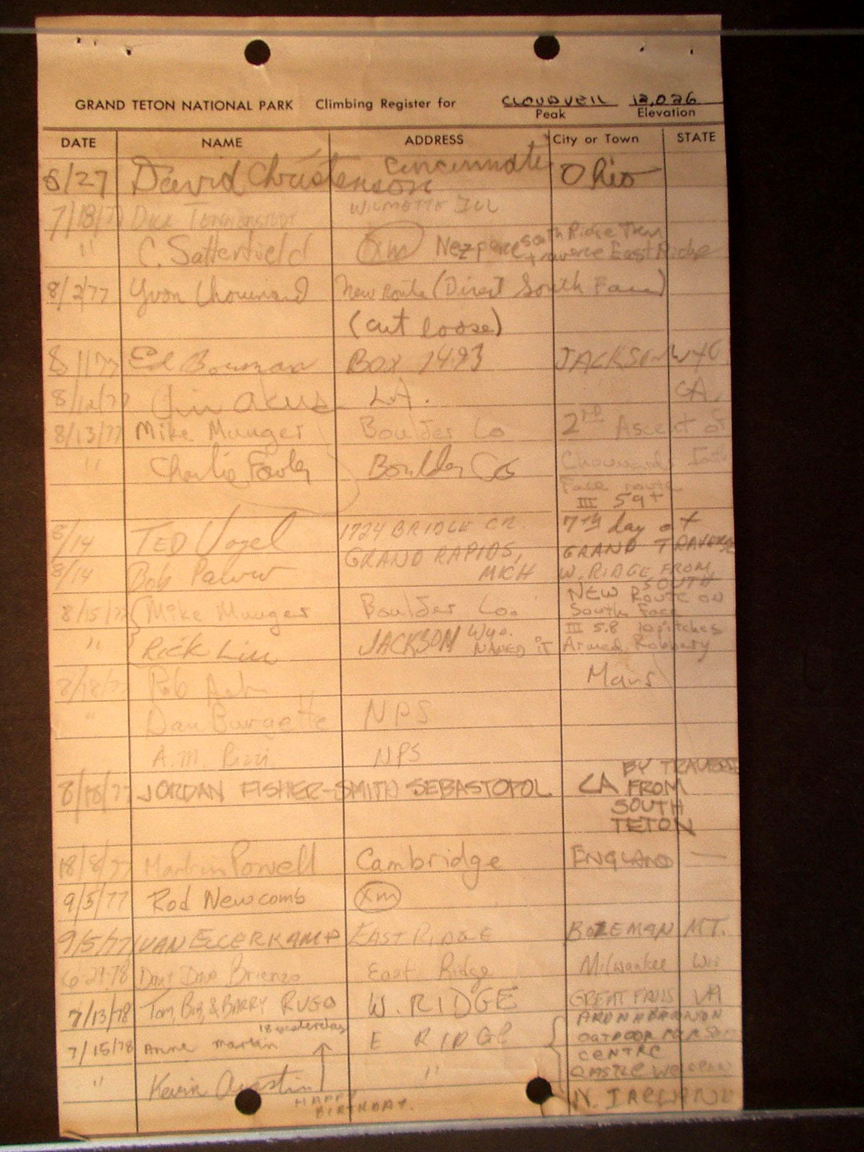 GRAND TETON NATIONAL PARK Climbing Register for CLOUDVEIL 12,026
Peak Elevation
DATE NAME ADDRESS City or Town STATE
6/27 David Christenson Cincinnati Ohio
7/18/77 Dick WILMETTE ILL
" C. Satterfield Xm Nezperce South Ridge Then traverse East Ridge
8/2/77 Yvon Chouinard New Route (Direct South Face)
(cut loose)
Ed Bowman BOX 1493 JACKSON WYO
8/12/77 LA. CA.
8/13/77 Mike Munger Boulder Co 2nd Ascent of
" Charlie Fowler Boulder Co Chouinards
Face route
III 5.9+
8/14 TED Vogel 1724 BRIDGE CR. 7TH day of
GRAND RAPIDS, GRAND TRAVERSE
8/14 Bob MICH W. RIDGE FROM
SOUTH
8/15/77 Mike Munger Boulder Co. NEW ROUTE ON
South Face
" Rick Liu JACKSON Wyo. III 5.8 10 pitches
NAMED IT Armed Robbery
Rob
" Dan Burgette NPS
A.M. NPS
8/18/77 JORDAN FISHER-SMITH SEBASTOPOL CA BY TRAVERSE
FROM
SOUTH
TETON
18/8/77 Martin Powell Cambridge ENGLAND —
9/5/77 Rod Newcomb Xm
9/5/77 EAST RIDGE BOZEMAN MT.
6-29-78 Dave Brienzo East Ridge Milwaukee Wis
7/13/78 Tom, Biz & BARRY RUGO W. RIDGE GREAT FALLS VA
18 yesterday
7/15/78 Anne Martin E RIDGE
OUTDOOR
CENTRE
" Kevin Austin " CASTLEWELLAN
HAPPY N. IRELAND
BIRTHDAY.